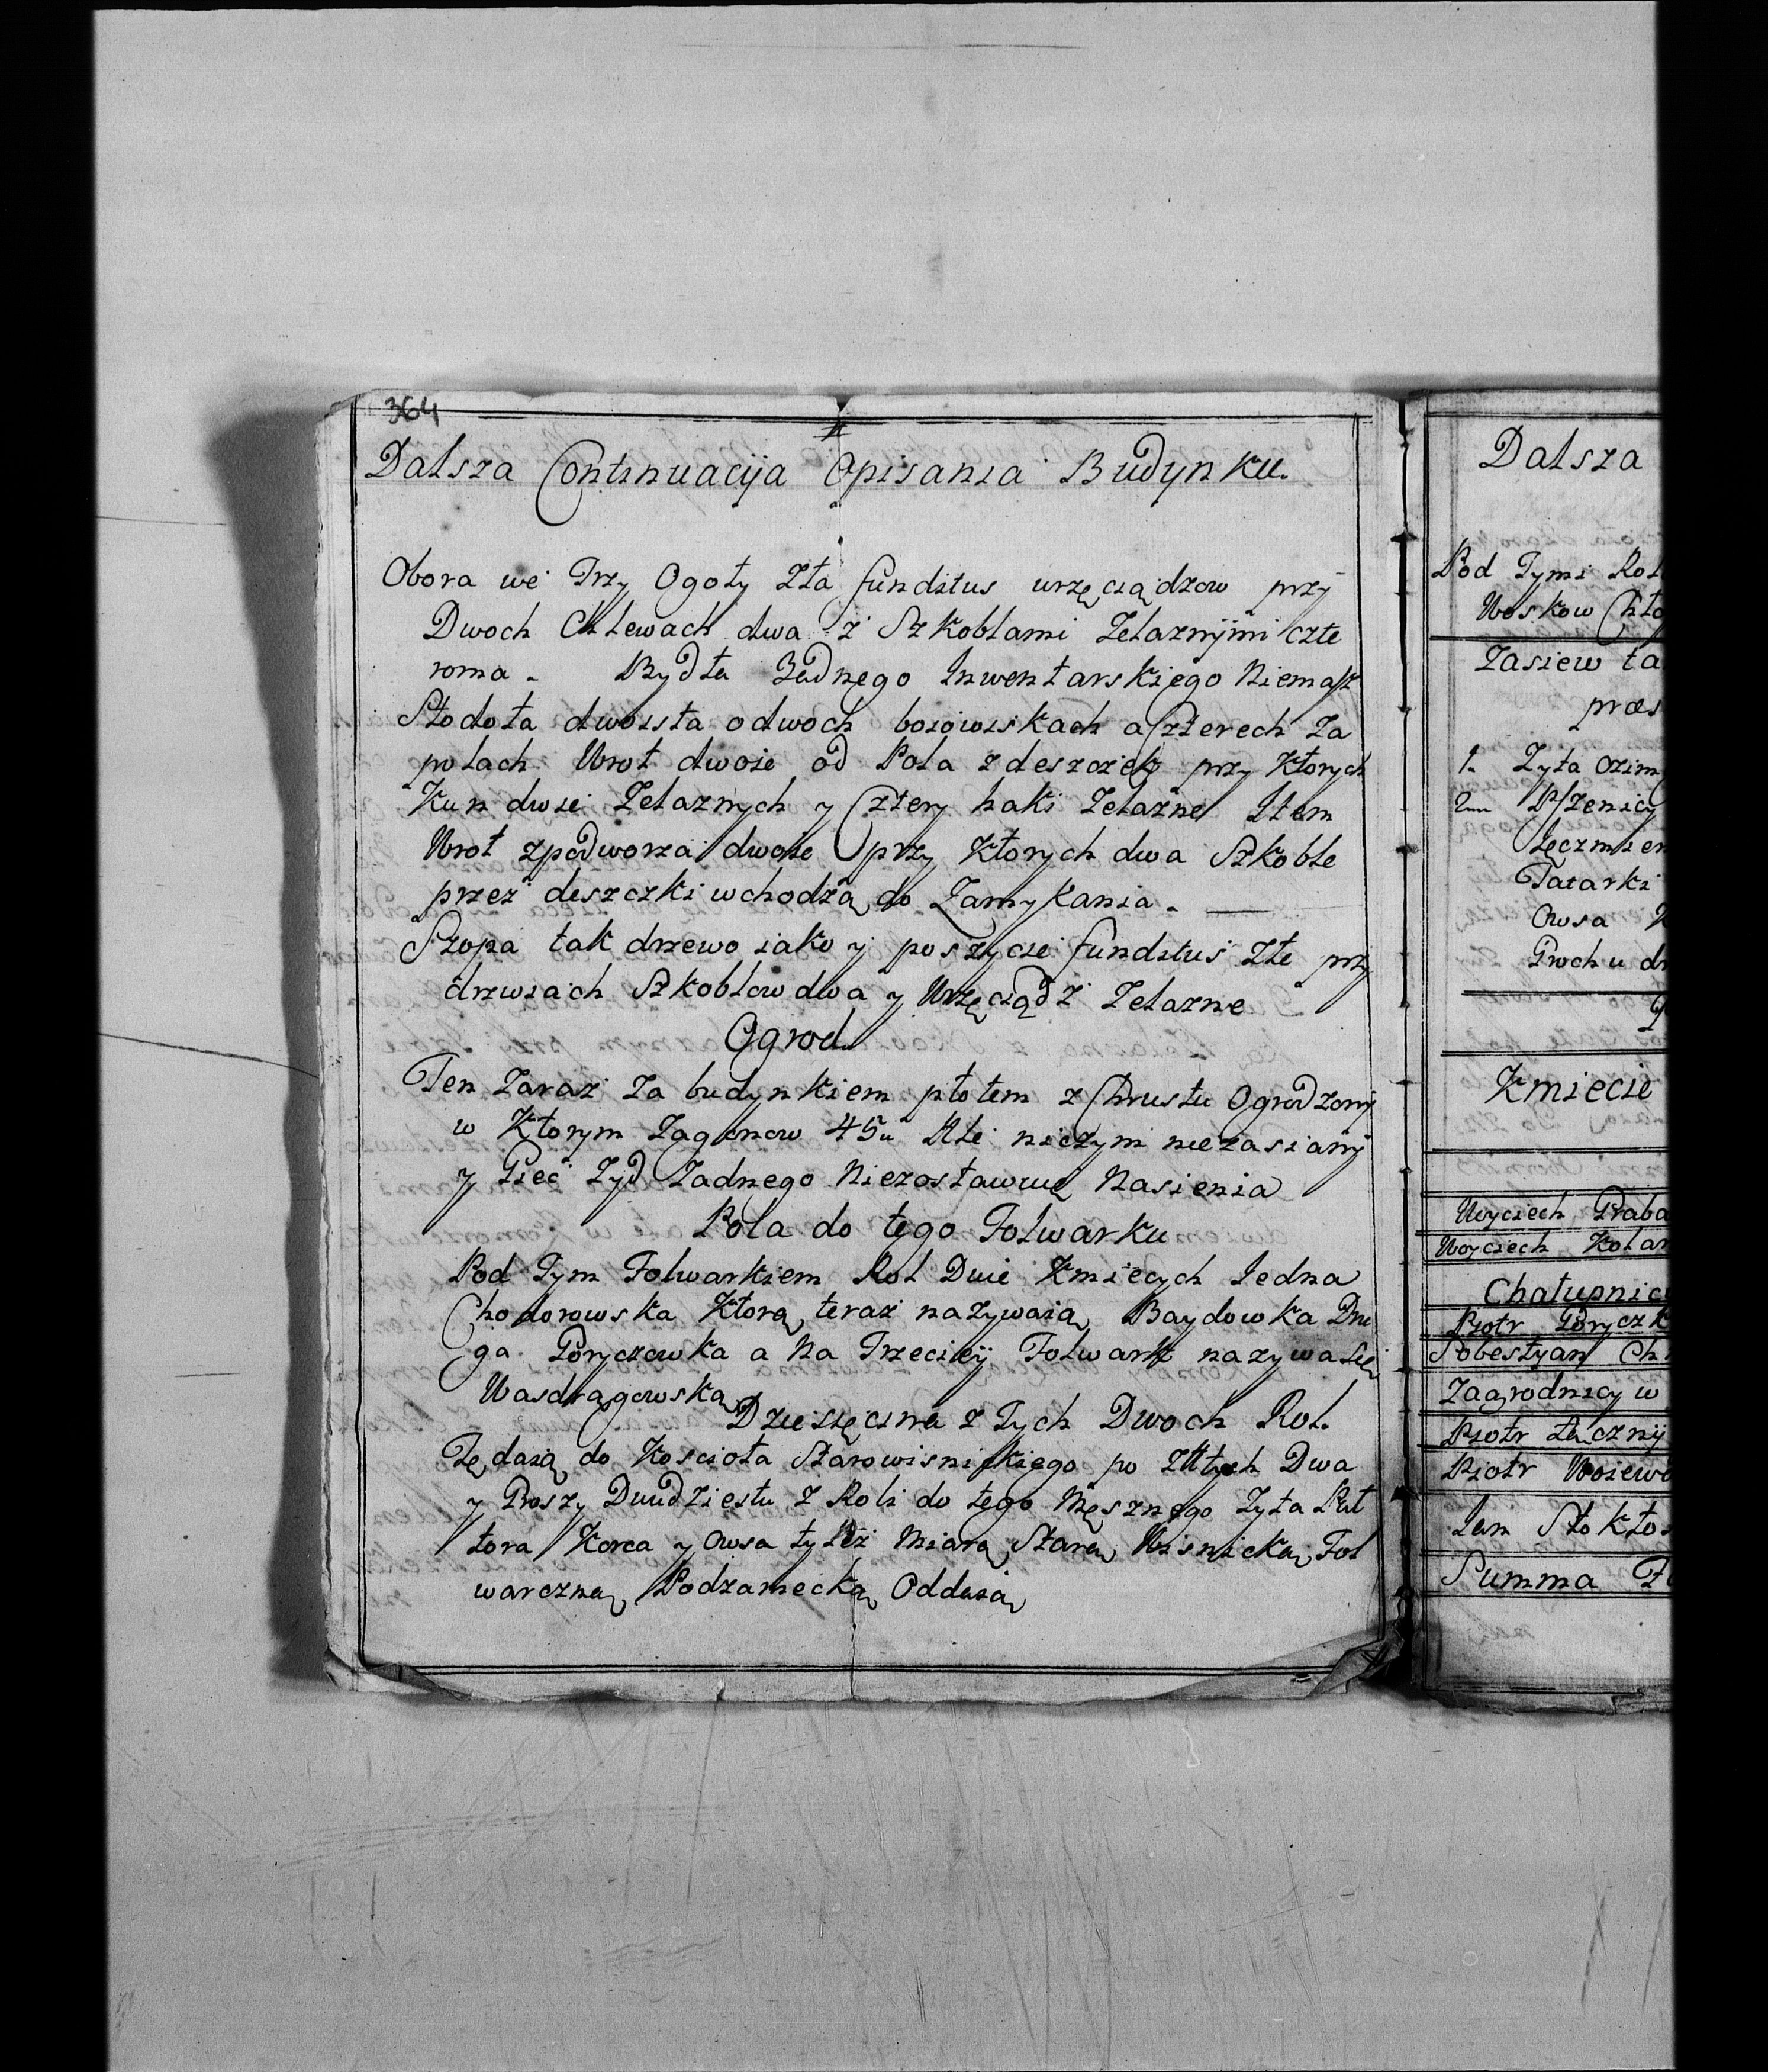 364
Dalsza Continuacija Opisania Budynku.
Obora we Trzy Ogoły Zła funditus wrzęciądzow przy
Dwoch Chlewach dwa z Szkoblami Zelaznymi czte
roma. Bydła Zadnego Inwentarskiego Niemasz
Stodoła dwoista o dwoch boiowiskach a Czterech Za
polach Wrot dwoie od Pola z deszczek przy ktorych
Kun dwie Zelaznych y Cztery haki Zelazne Item
Wrot zpodworza dwoie przy ktorych dwa Szkoble
przez deszczki wchodzą do Zamykania.
Szopa tak drzewo iako y poszycie funditus Złe przy
drzwiach Szkoblow dwa y Wrzęciądz Zelazne
Ogrod
Ten Zaraz Za budynkiem płotem z Chrustu Ogrodzony
w Ktorym Zagonow 45 Ale niczym niezasiany
y Zyd Zadnego Niezostawuie Nasienia
Pola do tego Folwarku
Pod Tym Folwarkiem Rol Dwie Kmiecych Iedna
Chodorowska Ktorą teraz nazywaią Baydowka Dru
ga Goryczowka a Na Trzeciey Folwark nazywa Się
Wasdrągowska
Dziesięcina z Tych Dwoch Rol.
Tę daią do Koscioła Starowisnickiego po Złłtych Dwa
y Groszy Dwudziestu z Roli do tego Męsznego Zyta Puł
tora Korca y Owsa tylez Miarą Starą Wisnicką Fol
warczną Podzamecką Oddaią
Dalsza
Pod Tymi Rol
Woskow Chło
Zasiew ta
præs
1. Zyta ozim
2 Pszenicy
Ięczmien
Tatarki
Owsa
Grochu dr
Kmiecie
Woyciech Graba
Woyciech Kolar
Chałupnic
Piotr Goryczk
Sobestyan Ch
Zagrodnicy w
Piotr Łaczny
Piotr Woiewo
Ian Stokło
Summa